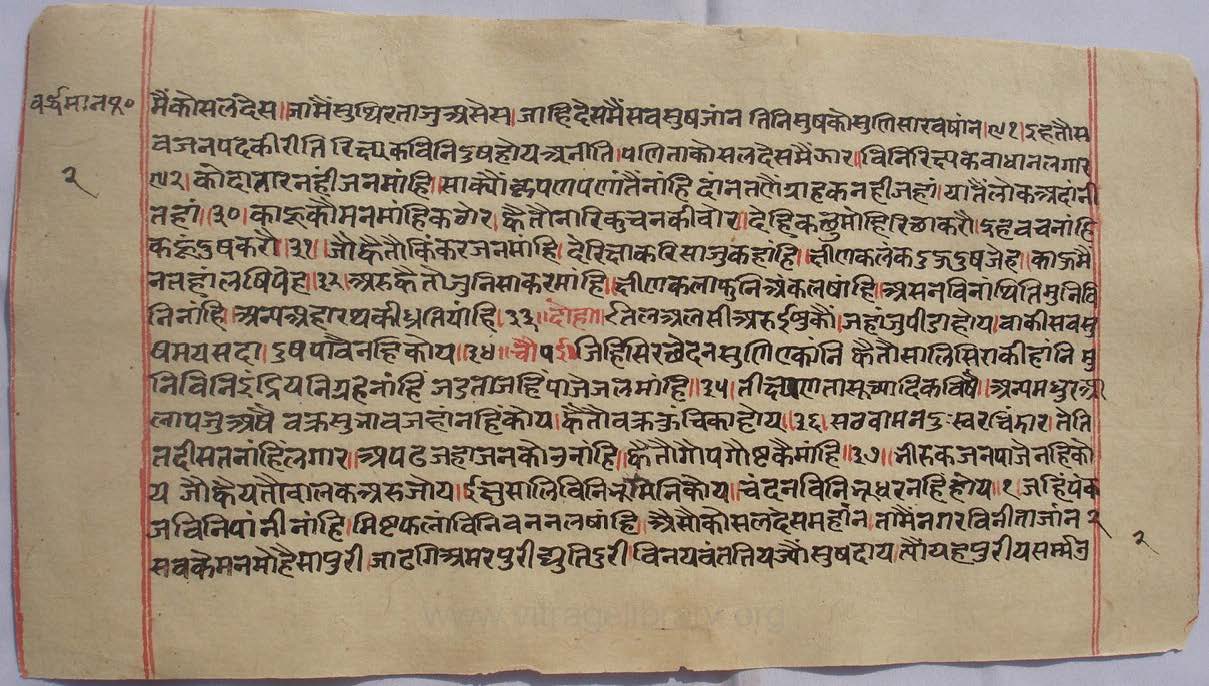 वर्द्धमान१०
२
मैंकोसलदेस।जामैंसुथिरताजुअसेस।जाहिदेसमैंसवसुषजांन तिनिसुषकोसुणिसारवषांन।२९।इहतौस
वजनपदकीरीति रिद्यकविनिदुषहोयअनीति।पणिताकोसलदेसमैंझार।विनिरिद्यकवाधानलगार
कोदातारनहीजनमांहि।साक्यौंद्रपणपणांतैंनांहि दांनतणैंग्राहकनहीजहां।यातैंलोकअदांनी
तहां।३०।काहूकौमनमांहिकठोर।कैतौनारिकुचनकीवोर।देहिकछुमोहिरिछाकरौ।इहवचनांहि
कहूंदुषकरौ।३१।जौकैतौकिंकरजनमांहि।देरिद्याकरिसाजुकहांहि।
नतहांलषिपेह।३२।अरुकैतौजुनिसाकरमांहि।षीणकलाफुनिअंकलषांहि।असनविनाथितिमुनिवि
तिनांहि।अन्यअहारथकीध्रतियांहि।३३।दोहा।तिलअलसीअरुईषुकौं।जहांजुपीडाहोय।वाकीसवसु
षमयसदा।दुषपावैनहिकोय।३४।चौपई।जिहिसिरछेदनसुणिएकांनि कैतौसालिसिराकीहांनि मु
निविनिइंद्रियनिग्रहनांहि जडतोजहिंपाजेजलमांहि।३५।तीक्ष्णपणतासूच्यादिकविषैं।अन्यमधुरअ
लापजुअषै वक्रसुभावजहांनहिकोय।कैतौवक्रकुंचिकाहोय।३६।सठवामनदुःस्वरधिंकार।तेति
तदीसतनांहिंलगार।अपढजहांजनकोउनांहि।कैतौगोपगौष्टकैमांहि।३७।भीरुकजनपाजेनहिको
य जौकैयतौवालकअरुजोय।ईक्षुसालिविनिभूमिनिकोय।चंदनविनिभूधरनहिहोय।१।जहिंपंक
जविनिपांनीनांहि।मिष्टफलांविनिवननलषांहि।अैसोकोसलदेसमहांन।तामैंनगरविनीताजांन २
सवकैमनमोहैसापुरी।जाढगिअमरपुरीद्युतिदुरी।विनयवंततियज्यौंसुषदाय।त्यौंयहपुरीय
२
www.vitragelibrary.org